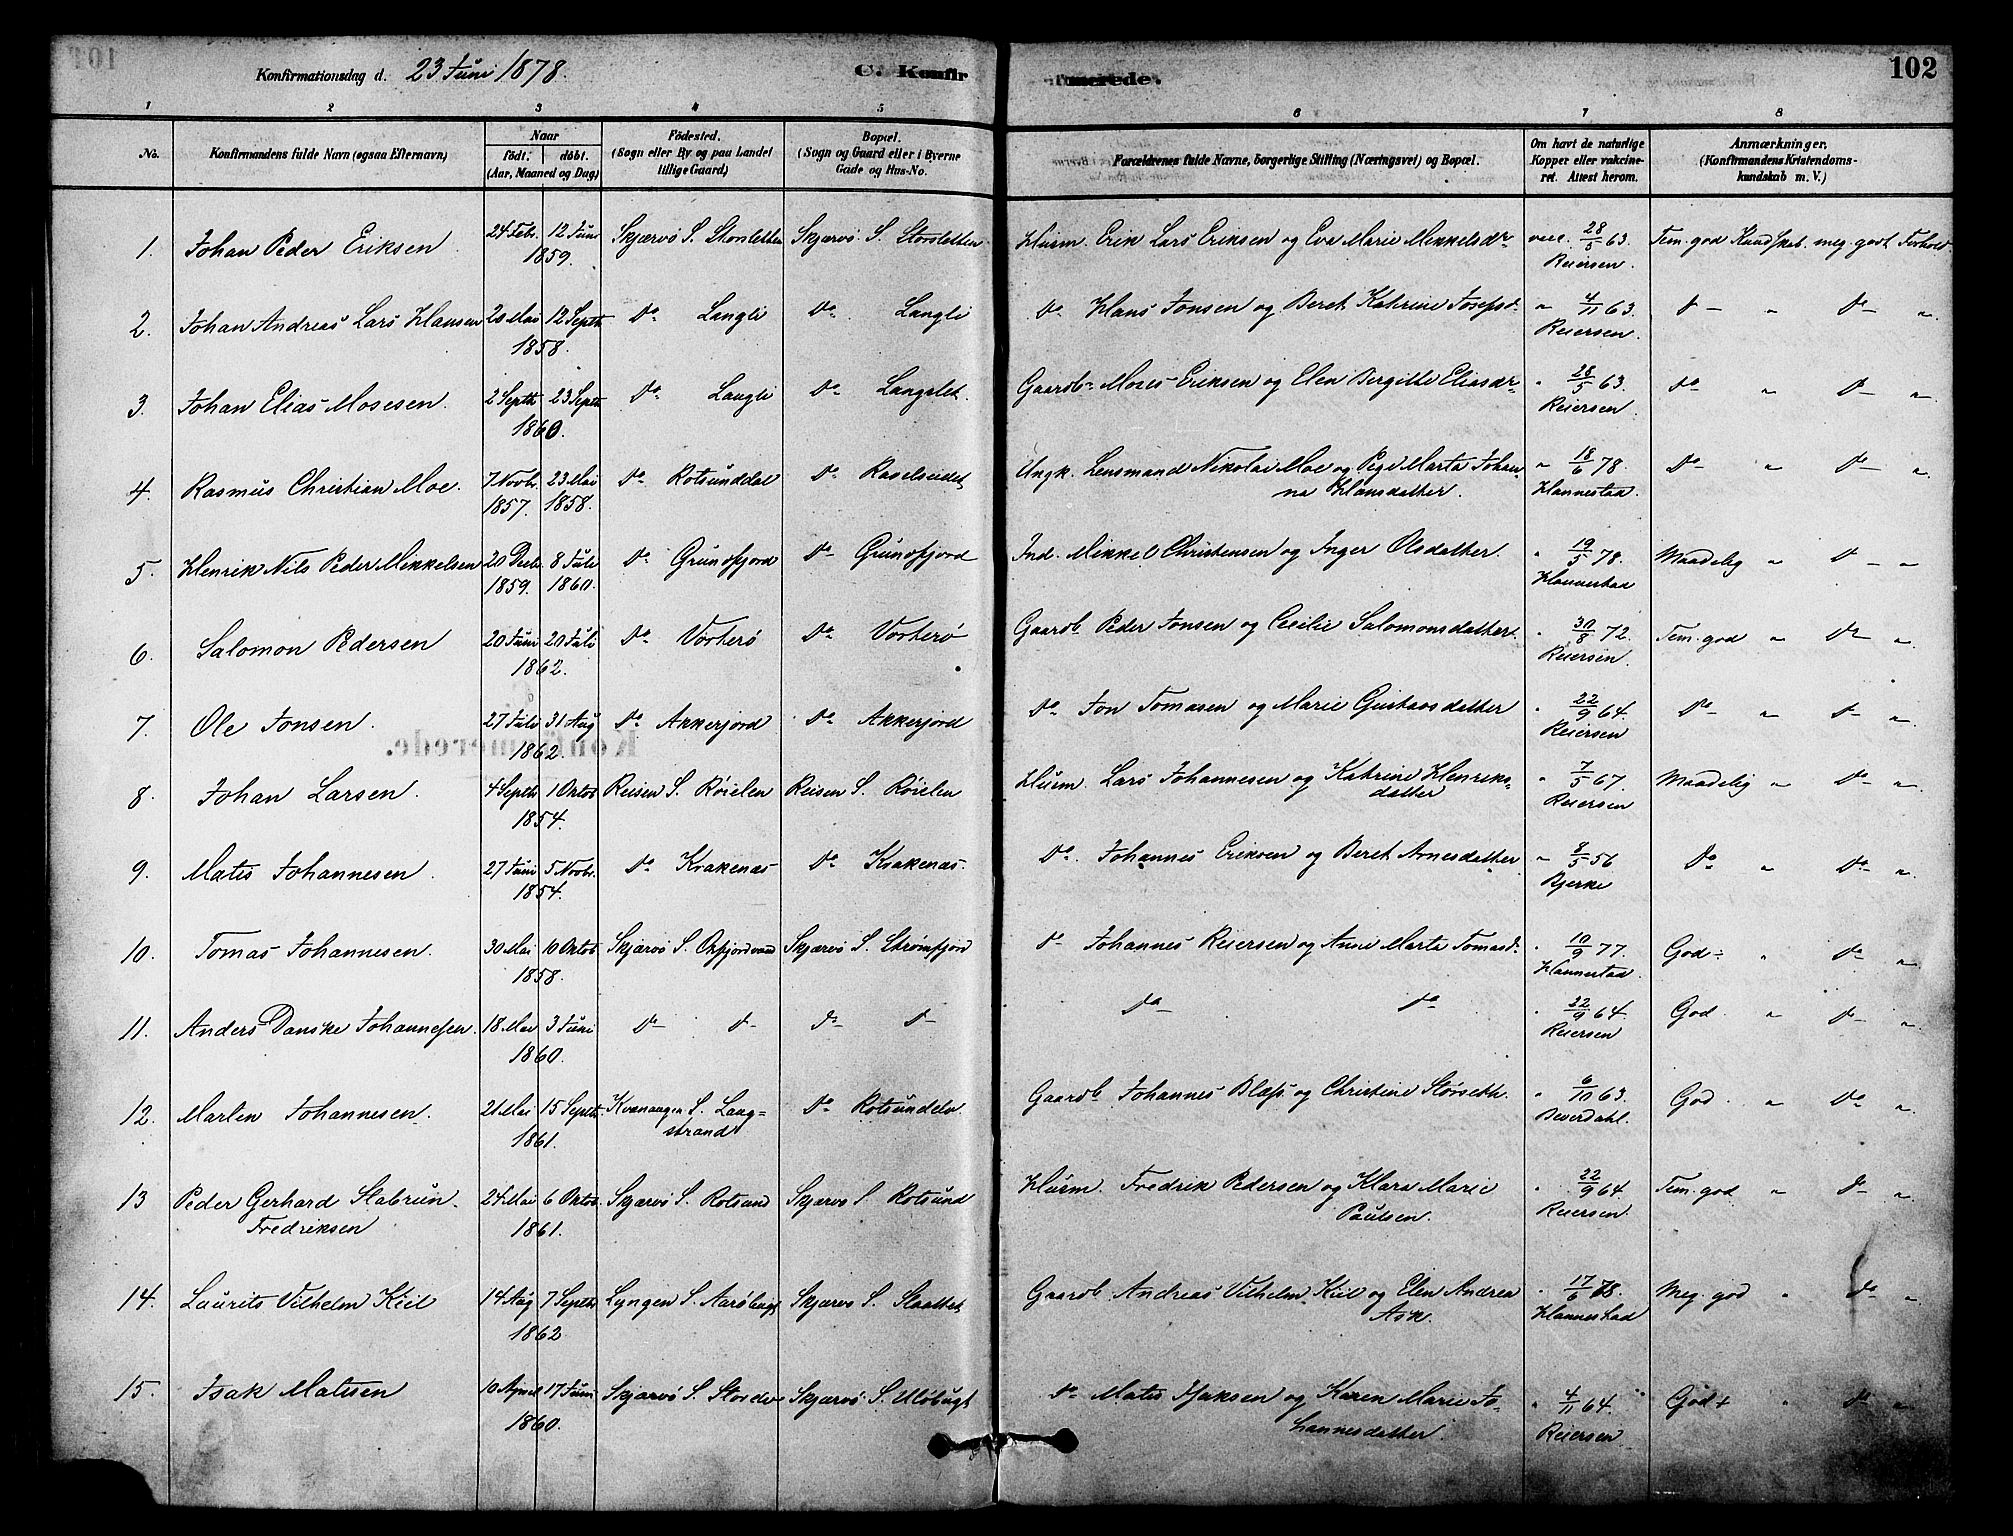 Konfirmationsdag d. 23 Juni 1878.
C. Konfirmerede.
102
1 2 3 4 5 6 7 8
No.
Konfirmandens fulde Navn (ogsaa Efternavn)
Naar
födt. döbt.
(Aar, Maaned og Dag)
Födested.
(Sogn eller By og paa Landet
tillige Gaard)
Bopæl.
(Sogn og Gaard eller i Byerne
Gade og Hus-No.
Forældrenes fulde Navne, borgerlige Stilling (Næringsvei) og Bopæl.
Om havt de naturlige
Kopper eller vakcine-
ret. Attest herom.
Anmærkninger,
(Konfirmandens Kristendoms-
kundskab m. V.)
1. Johan Peder Eriksen. 24 Febr. 12 Juni Skjærvö S. Storsletten Skjærvö S. Storsletten Husm. Erik Lars Eriksen og Eva Marie Mikkelsdr vacc. 28/5 63. Tem. god Kundskab. meg. godt Forhold.
1859. Reiersen.
2. Johan Andreas Lars Hansen 20 Mai 12 Septbr Do Langli Do Langli Do Hans Jonsen og Beret Katrine Josefsd. " 4/11 63. D- " Do ".
1858. Reiersen.
3. Johan Elias Mosesen. 2 Septbr 23 Septbr Do Langli Do Langslet. Gaardb. Moses Eriksen og Elen Bergitte Eliasdr " 28/5 63. Do " D- "
1860. Reiersen.
4. Rasmus Christian Moe. 7 Novbr. 23 Mai Do Rotsunddal Do Raselseidet Ungk. Lensmand Nikolai Moe og Pige Marta Johan- " 18/6 78. Do " Do "
1857. 1858. na Hansdatter. Hannestad.
5. Henrik Nils Peder Mikkelsen 20 Decb. 8 Juli Do Grundfjord Do Grundfjord Ind. Mikkel Christensen og Inger Olsdatter. " 19/5 78. Maadelig " D- "
1859. 1860. Hannestad
6. Salomon Pedersen 20 Juni 20 Juli Do Vorterö Do Vorterö Gaardb. Peder Jonsen og Cecilie Salomonsdatter. " 30/8 72. Tem. god " Do "
1862. Reiersen.
7. Ole Jonsen. 27 Juli 31 Aug Do Akkerjord Do Akkerjord Do Jon Tomasen og Marie Gustavsdatter " 22/9 64. Do " D- "
1862. Reiersen
8. Johan Larsen. 4 Septbr 1 Oktob Reisen S. Röielen Reisen S. Röielen Husm. Lars Johannesen og Katrine Henriks- " 7/5 67. Maadelig " Do "
1854. datter Reiersen
9. Matis Johannesen. 27 Juni 5 Novbr. Do Krakenæs Do Krakenæs. Do Johannes Eriksen og Beret Arnesdatter " 8/5 56 Do " Do ".
1854. Bjerke
10. Tomas Johannesen. 30 Mai 10 Oktob Skjærvö S. Oxfjordvand Skjærvö S. Strömfjord D- Johannes Reiersen og Anne Marta Tomasd. " 10/9 77. God " Do "
1858. Hannestad.
11. Anders Danske Johannesen. 18 Mai 3 Juni Do D- Do D- Do Do " 22/9 64. God. " D- "
1860. Reiersen
12. Marten Johannesen. 21 Mai 15 Septbr. Kvænangen S. Lang- Do Rotsundelv Gaardb. Johannes Blæss. og Christine Störseth. " 6/10 63. God. " Do "
1861. strand. Beverdahl.
13 Peder Gerhard Slabrun 24 Mai 6 Oktob. Skjærvö S. Rotsund Skjærvö S. Rotsund Husm. Fredrik Pedersen og Klara Marie " 22/9 64. Tem. god " D- "
Fredriksen 1861. Paulsen. Reiersen.
14. Laurits Vilhelm Kiil 14 Aug 7 Septbr Lyngen S. Aaröbugt Skjærvö S. Gaardb. Andreas Vilhelm Kiil og Elen Andrea " 17/6 78. Meg. god " Do "
1862 Ask. Hannestad
15. Isak Matisen 10 April 17 Juni Skjærvö S. Storelv Skjærvö S. Ulöbugt Do Matis Isaksen og Karen Marie Jo- " 4/11 64. God + " Do "
1860. hannesdatter. Reiersen